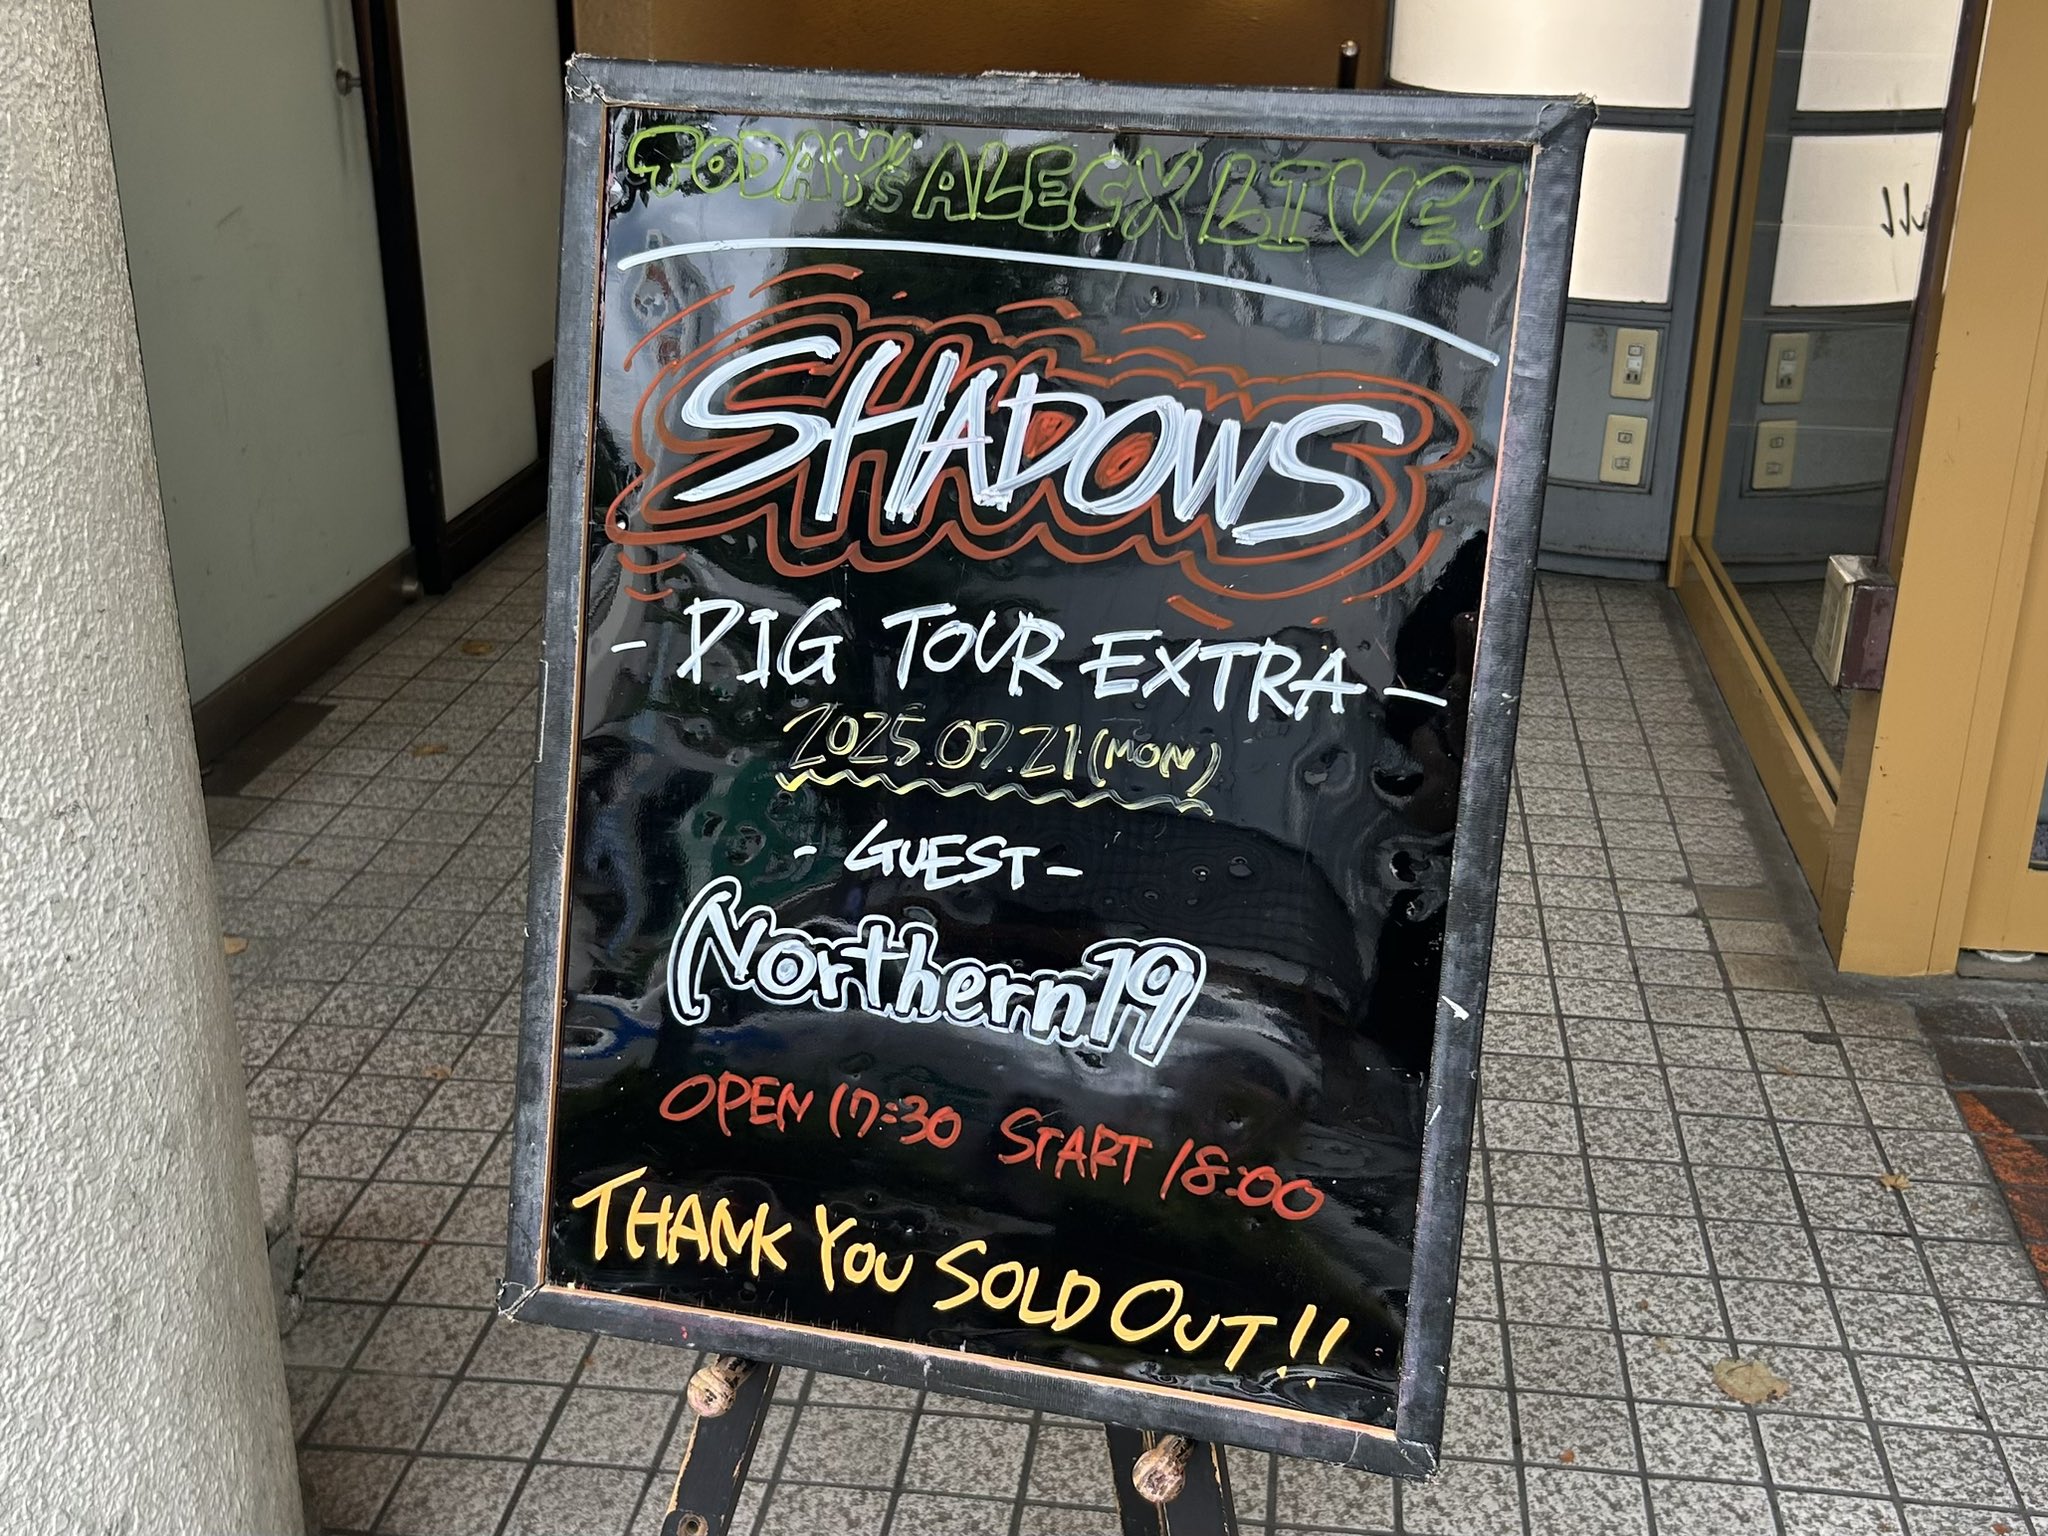 TODAY'S ALECX LIVE!
SHADOWS
- PIG TOUR EXTRA -
2025.07.21(MON)
- GUEST -
Northern19
OPEN 17:30 START 18:00
THANK YOU SOLD OUT!!